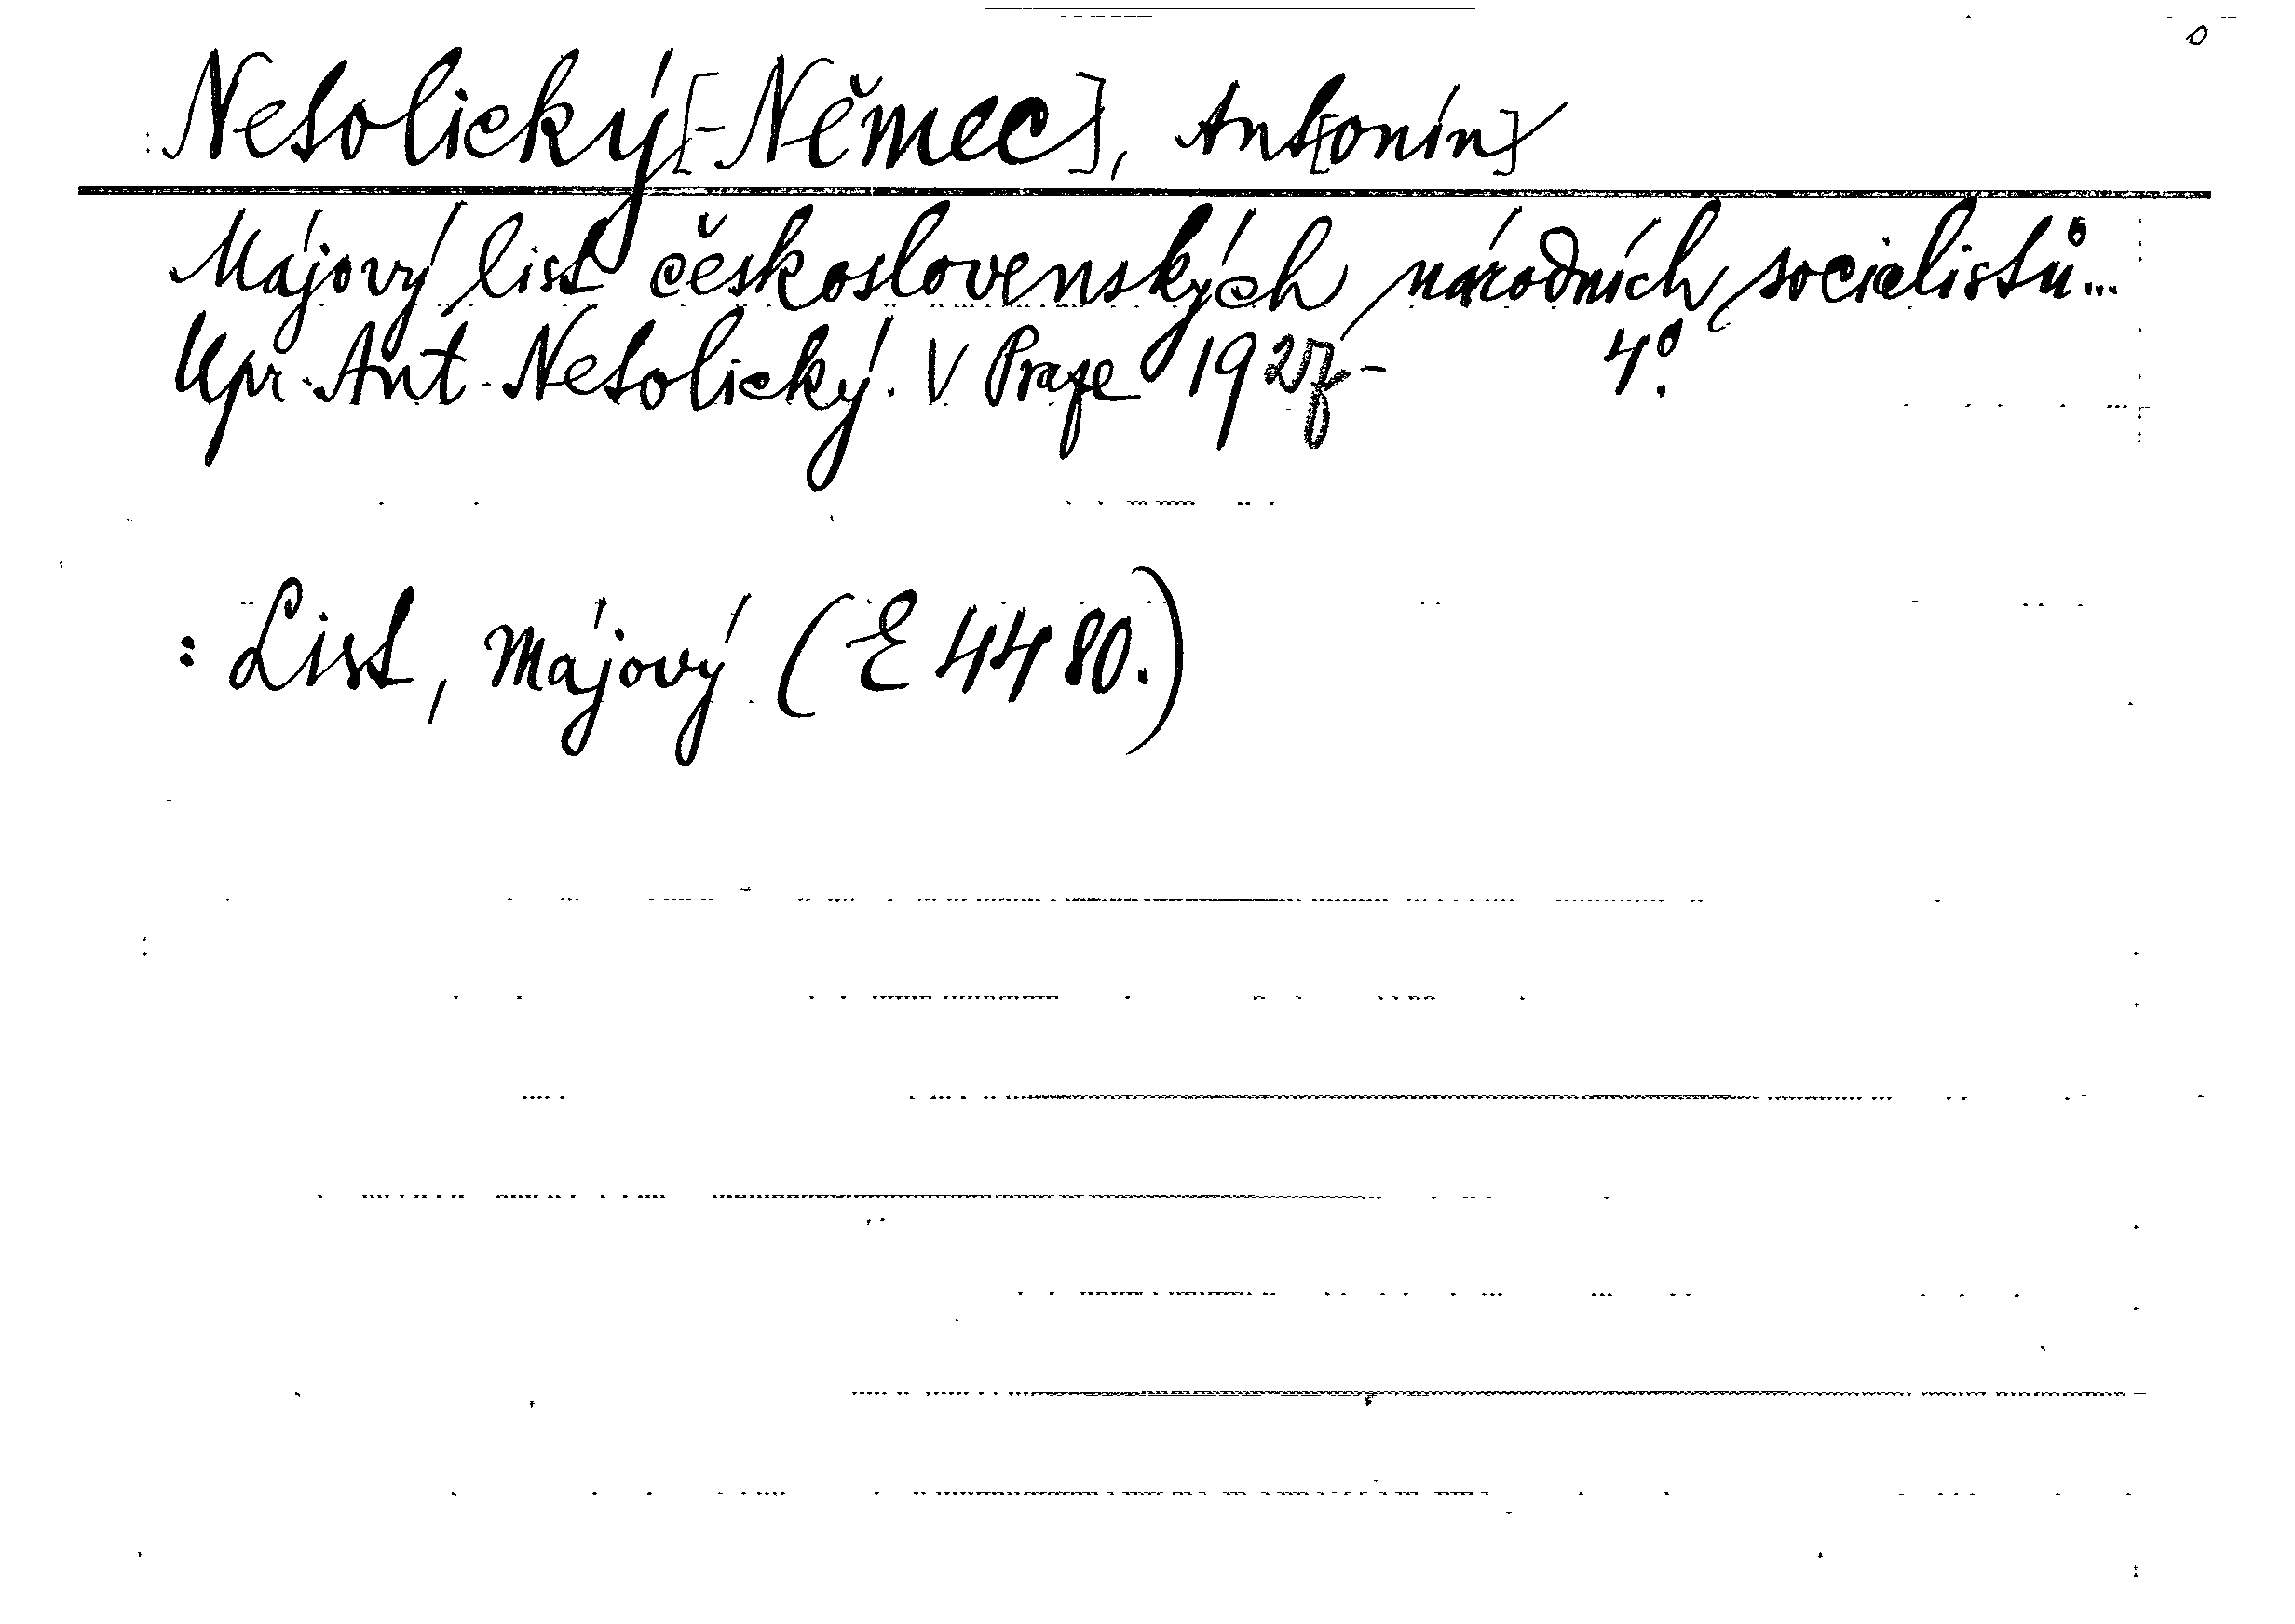 Netolický[-Němec], Ant[onín]
Májový list československých národních socialistů...
Upr. Ant. Netolický. V Praze 1927- 4º.
: List, Májový (E 4480.)